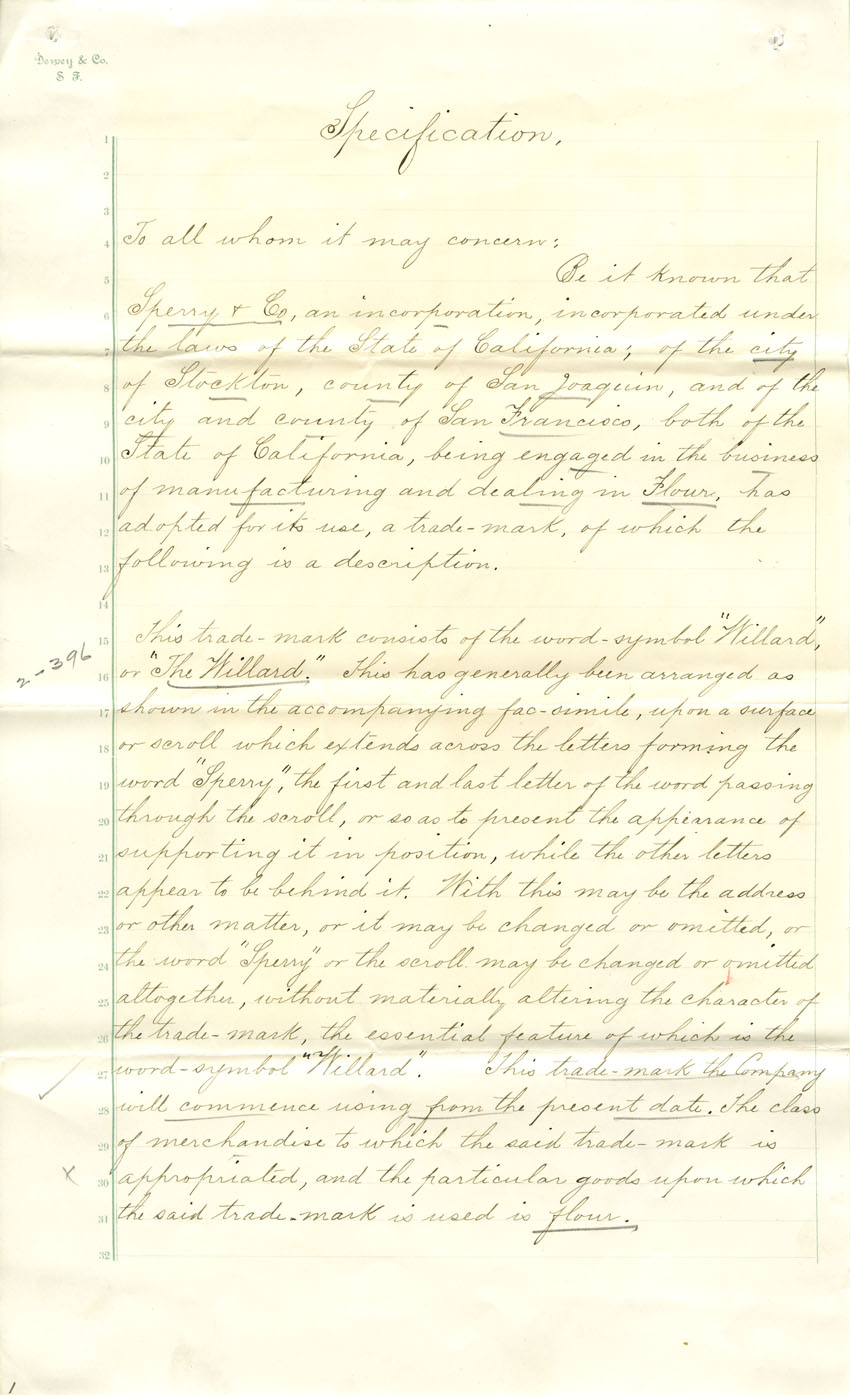 Dewey & Co.
S F.
Specification.
1
2
3
4 To all whom it may concern:
5 Be it known that
6 Sperry & Co, an incorporation, incorporated under
7 the laws of the State of California; of the city
8 of Stockton, county of San Joaquin, and of the
9 city and county of San Francisco, both of the
10 State of California, being engaged in the business
11 of manufacturing and dealing in Flour, has
12 adopted for its use, a trade-mark, of which the
13 following is a description.
14
15 This trade-mark consists of the word-symbol "Willard",
2-396
16 or "The Willard." This has generally been arranged as
17 shown in the accompanying fac-simile, upon a surface
18 or scroll which extends across the letters forming the
19 word "Sperry", the first and last letter of the word passing
20 through the scroll, or so as to present the appearance of
21 supporting it in position, while the other letters
22 appear to be behind it. With this may be the address
23 or other matter, or it may be changed or omitted, or
24 the word "Sperry" or the scroll may be changed or omitted
25 altogether, without materially altering the character of
26 the trade-mark, the essential feature of which is the
27 word-symbol "Willard". This trade-mark the Company
28 will commence using from the present date. The class
29 of merchandise to which the said trade-mark is
x
30 appropriated, and the particular goods upon which
31 the said trade-mark is used is flour.
32
1